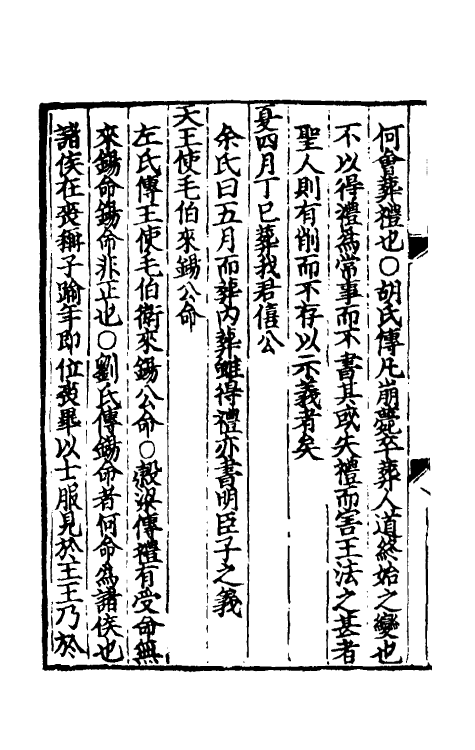 何會葬禮也○胡氏傳凡崩薨卒葬人道終始之變也
不以得禮爲常事而不書其或失禮而害王法之甚者
聖人則有削而不存以示義者矣
夏四月丁巳葬我君僖公
余氏曰五月而葬內葬雖得禮亦書明臣子之義
天王使毛伯來錫公命
左氏傳王使毛伯衛來錫公命○穀梁傳禮有受命無
來錫命錫命非正也○劉氏傳錫命者何命爲諸侯也
諸侯在喪稱子踰年即位喪畢以士服見於王王乃於